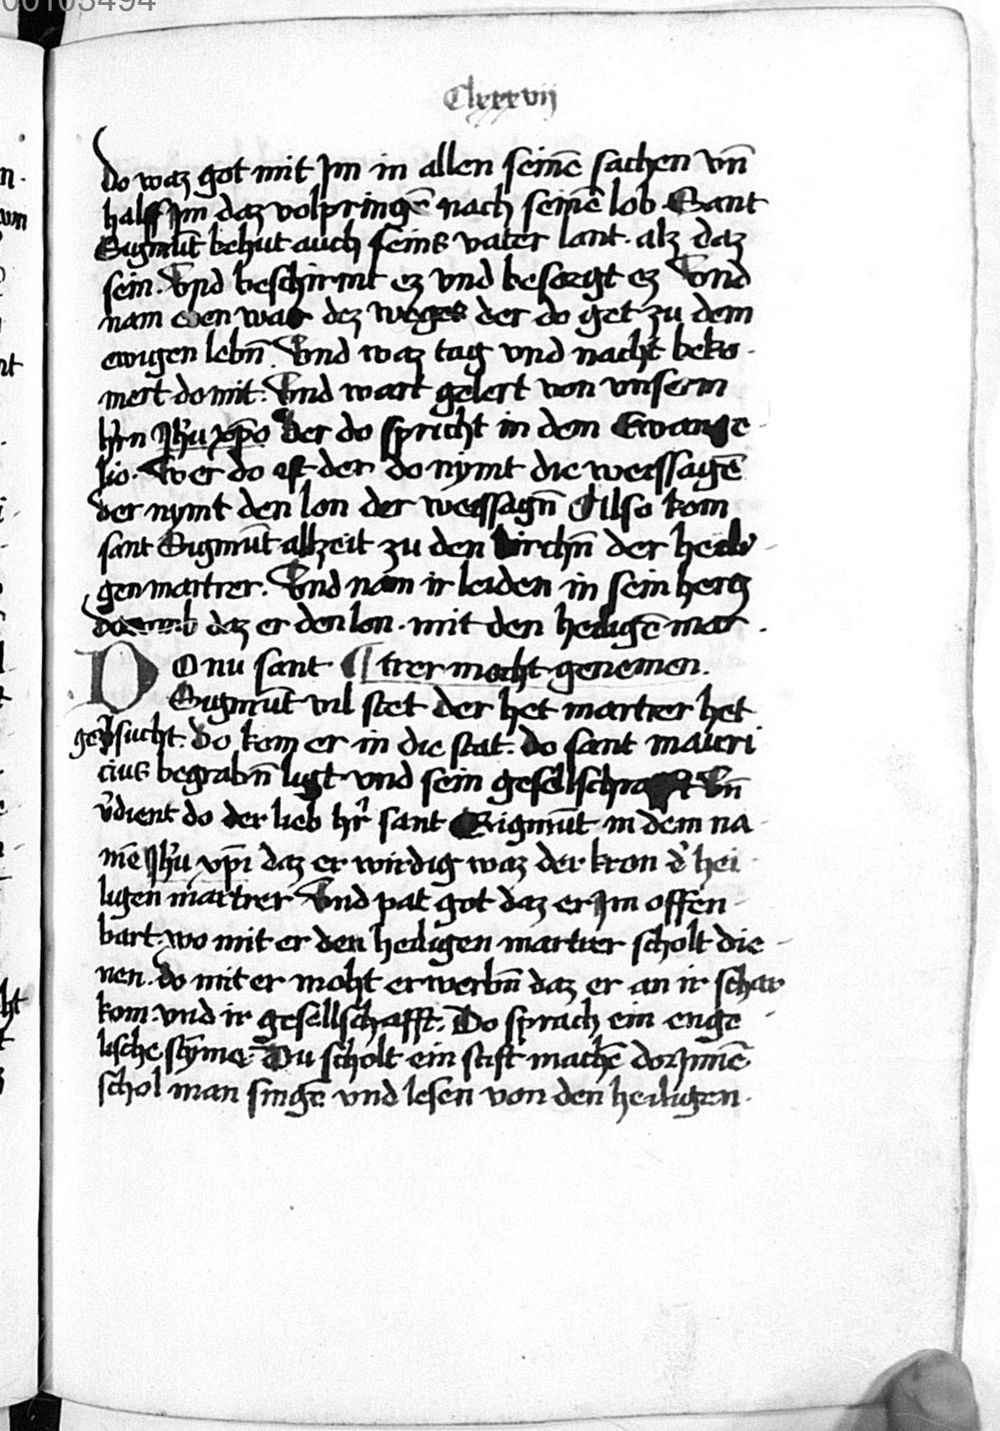 00103494
Clxxxvij
do waz got mit Im in allen seinē sachen vn̄
half Im daz volpringē nach seinē lob Sant
Sigmūt behut auch seins vater lant. alz daz
sein. Vnd beschirmt ez vnd besorgt ez Vnd
nam eben war dez weges der do get zu dem
ewigen lebn̄. Vnd waz tag vnd nacht beko
mert do mit. Vnd wart gelert von vnserm
hrn Jhu xpo der do spricht in dem Ewange
lio. Wer do ist der do nymt die weissagē
der nymt den lon der weissagn̄ Also kom
sant Sigmūt allzeit zu den kirchn̄ der heili
gen martrer. Vnd nam ir leiden in sein hertz
dorumb daz er den lon. mit den heiligē mar
DO nu sant ¶ trer mocht genemen.
Sigmūt vil stet der het martrer het
gesucht. do kom er in die stat. do sant mauri
cius begrabn̄ ligt vnd sein gesellschaft Vn̄
v̄dient do der lieb hr̄ sant Sigmūt in dem na
mē Jhu xpi daz er wirdig waz der kron d' hei
ligen martrer Vnd pat got daz er Im offen
bart. wo mit er den heiligen martrer scholt die
nen. do mit er moht erwerbn̄ daz er an ir schar
kom. vnd ir gesellschafft. Do sprach ein enge
lische stȳme. Du scholt ein stift machē dor Innē
schol man singē vnd lesen von den heiligen.